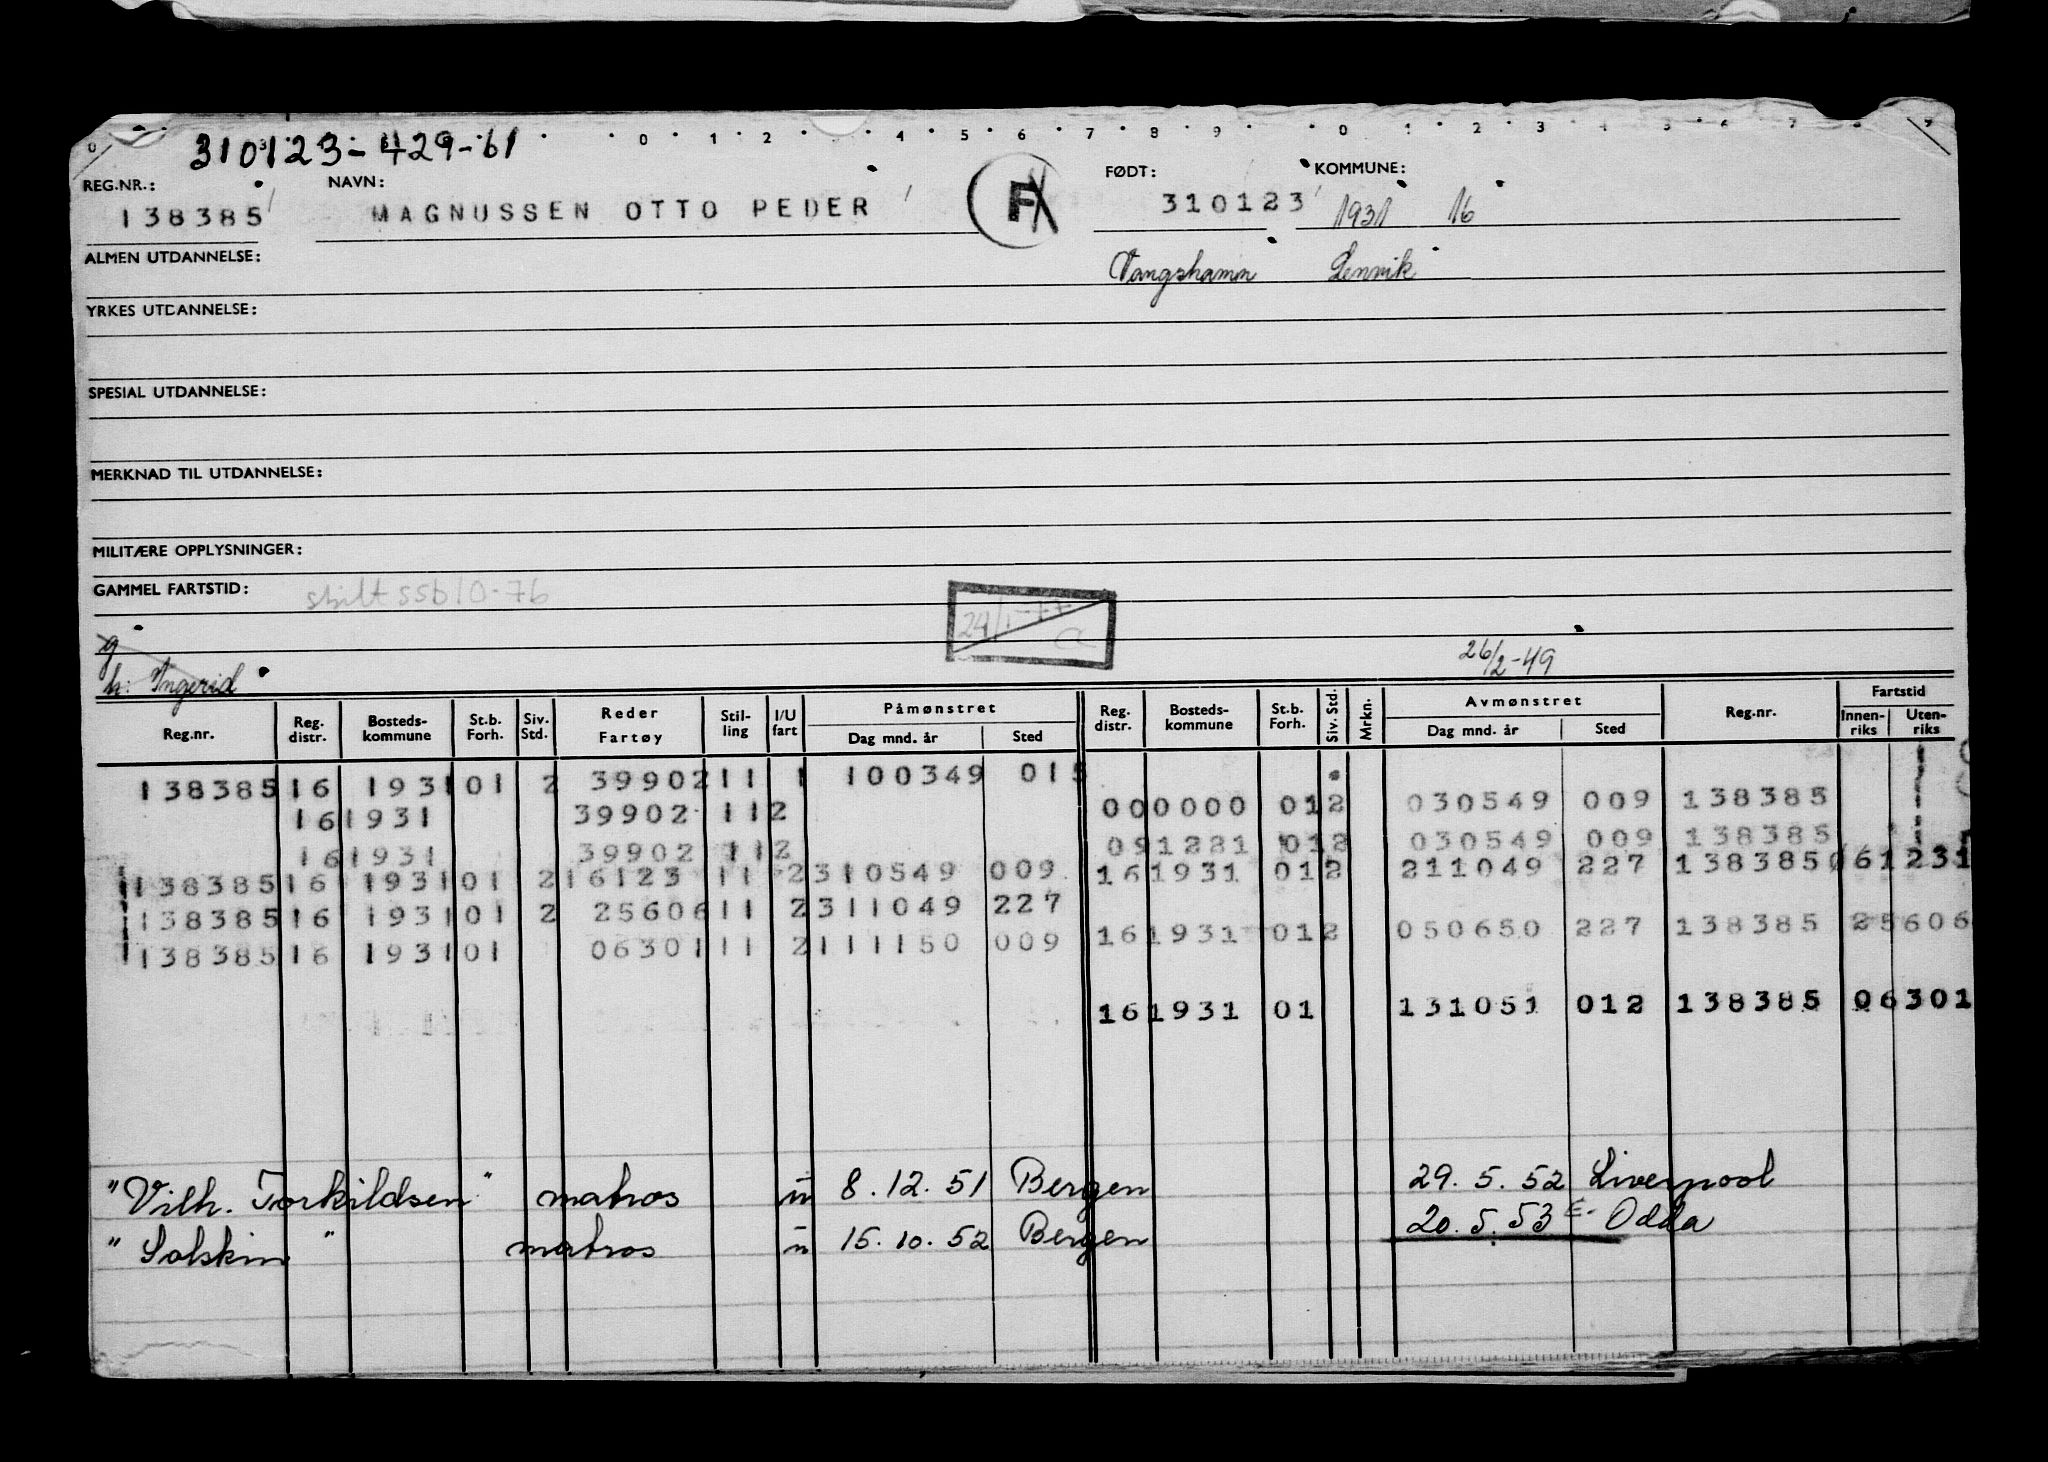 0 1 2 4 5 6 7 8 9 0 1 2 3 4 5 6 7 8 9
310123-429-61
REG.NR.: NAVN: FØDT: KOMMUNE:
138385 MAGNUSSEN OTTO PEDER F 310123 1931 16
ALMEN UTDANNELSE: Vangshamn Lenvik
YRKES UTDANNELSE:
SPESIAL UTDANNELSE:
MERKNAD TIL UTDANNELSE:
MILITÆRE OPPLYSNINGER:
GAMMEL FARTSTID: skilt ssb 10-76
24/1-77
g
h: Ingerid 26/2-49
Reg.nr. Reg. distr. Bosteds-kommune St.b. Forh. Siv. Std. Reder Fartøy Stil-ling I/U fart Påmønstret Dag mnd. år Sted Reg. distr. Bosteds-kommune St.b. Forh. Siv. Std. Mrkn. Avmønstret Dag mnd. år Sted Reg.nr. Fartstid Innen-riks Uten-riks
138385 16 1931 01 2 39902 11 1 100349 015
16 1931 39902 11 2 000000 01 2 030549 009 138385
16 1931 39902 11 2 091221 01 2 030549 009 138385
138385 16 1931 01 2 16123 11 2 310549 009 16 1931 01 2 211049 227 138385 61231
138385 16 1931 01 2 25606 11 2 311049 227
16 1931 01 2 050650 227 138385 25606
138385 16 1931 01 06301 11 2 111150 009
16 1931 01 131051 012 138385 06301
"Vilh. Torkildsen" matros u 8.12.51 Bergen 29.5.52 Liverpool
"Solskin" matros u 15.10.52 Bergen 20.5.53 E- Odda